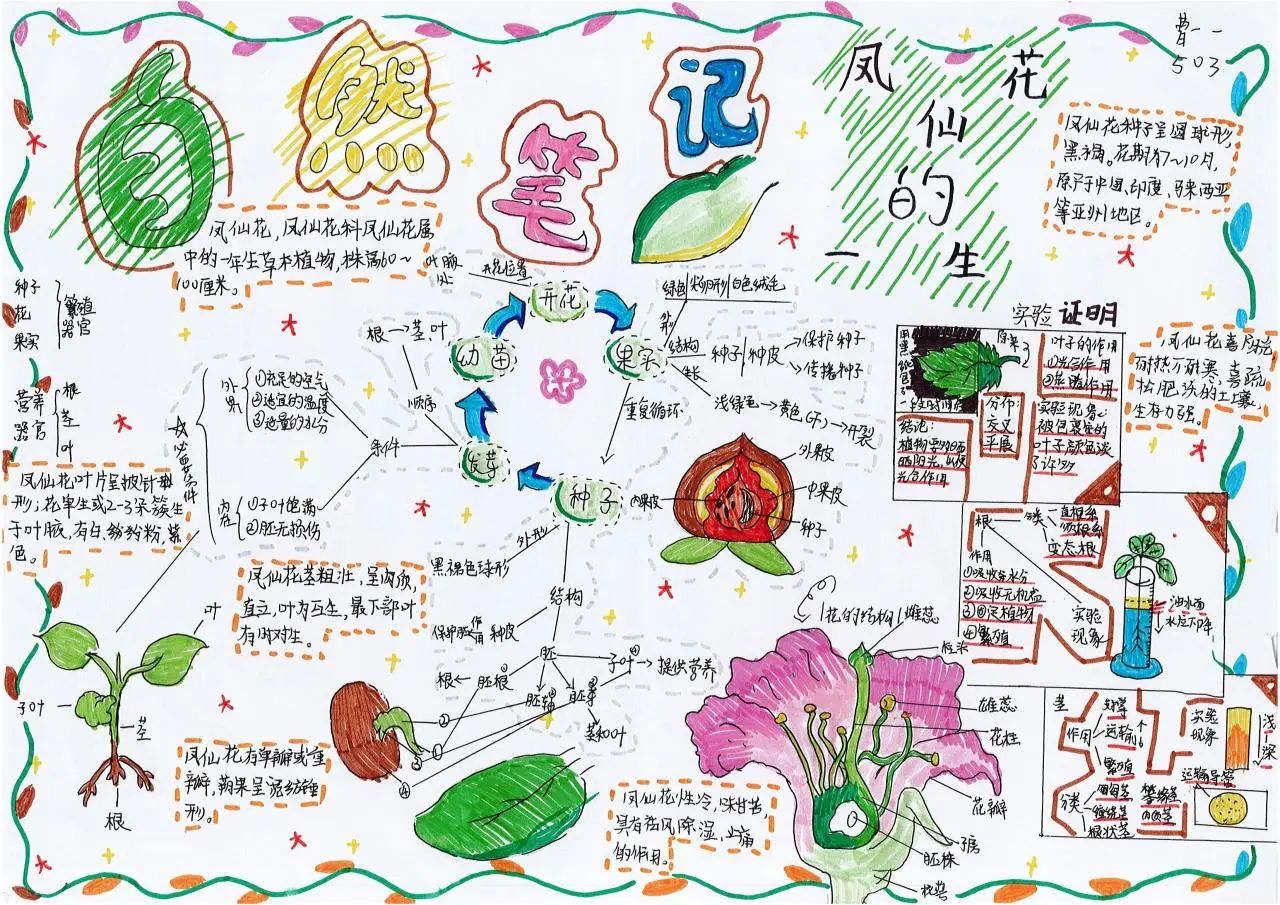 自然笔记
凤仙花的一生
曹一一
503
凤仙花种子呈圆球形,
黑褐。花期为7~10月,
原产于中国、印度、马来西亚
等亚州地区。
凤仙花,凤仙花科凤仙花属
中的一年生草本植物,株高60~
100厘米。
叶腋处
开花位置
开花
果实
种子
发芽
幼苗
重复循环
绿色|椭圆形|白色绒毛
外形
结构
种子|种皮
保护种子
传播种子
浅绿毛→黄色(干)→开裂
根→茎、叶
顺序
条件
外界
①充足的空气
②适宜的温度
③适量的水分
内在
①子叶饱满
②胚无损伤
必需条件
种子
花
果实
繁殖
器官
营养
器官
根
茎
叶
凤仙花叶片呈披针
形;花单生或2-3朵簇生
于叶腋,有白、粉、紫
色。
凤仙花茎粗壮,呈肉质,
直立,叶为互生,最下部叶
有时对生。
叶
子叶
茎
根
凤仙花有单瓣或重
瓣,蒴果呈宽纺锤
形。
外形
黑褐色球形
结构
保护胚
作用
种皮
胚
根←胚根
胚轴
胚芽
子叶→提供营养
茎和叶
①
②
③
④
外果皮
中果皮
内果皮
种子
花的结构
雌蕊
柱头
雄蕊
花柱
花瓣
子房
胚株
花萼
凤仙花性冷,味甘苦,
具有祛风除湿,止痛
的作用。
实验 证明
用黑纸包
一段时间后
叶子的作用
①光合作用
②蒸腾作用
分布:
交叉
平展
实验现象:
被包裹住的
叶子颜色淡
了许多
结论:
植物要的晒
晒阳光,以便
光合作用
凤仙花喜阳光,
耐热不耐寒,喜疏
松肥沃的土壤,
生存力强。
根
分类
直根系
须根系
变态根
作用
①吸收水分
②吸收无机盐
③固定植物
④繁殖
实验
现象
油水面
水位下降
茎
作用
支撑
运输
繁殖
分类
缠绕茎
攀缘茎
肉质茎
根状茎
实验
现象
浅
↓
深
运输导管